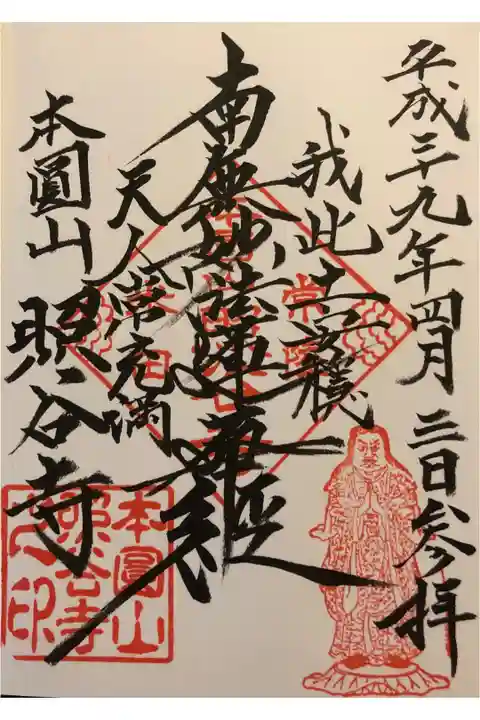 平成二十九年四月三日参拝
我此土安穏
南無妙法蓮華経
天人常充満
本圓山
照谷寺
本圓山
照谷寺
之印